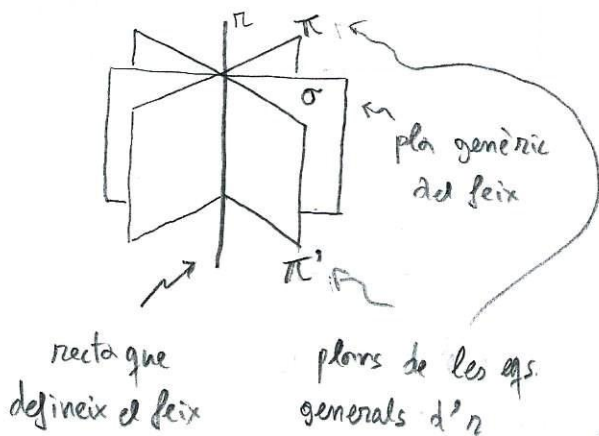 r
π
σ
pla genèric
del feix
π'
recta que
defineix el feix
plans de les eqs.
generals d'r